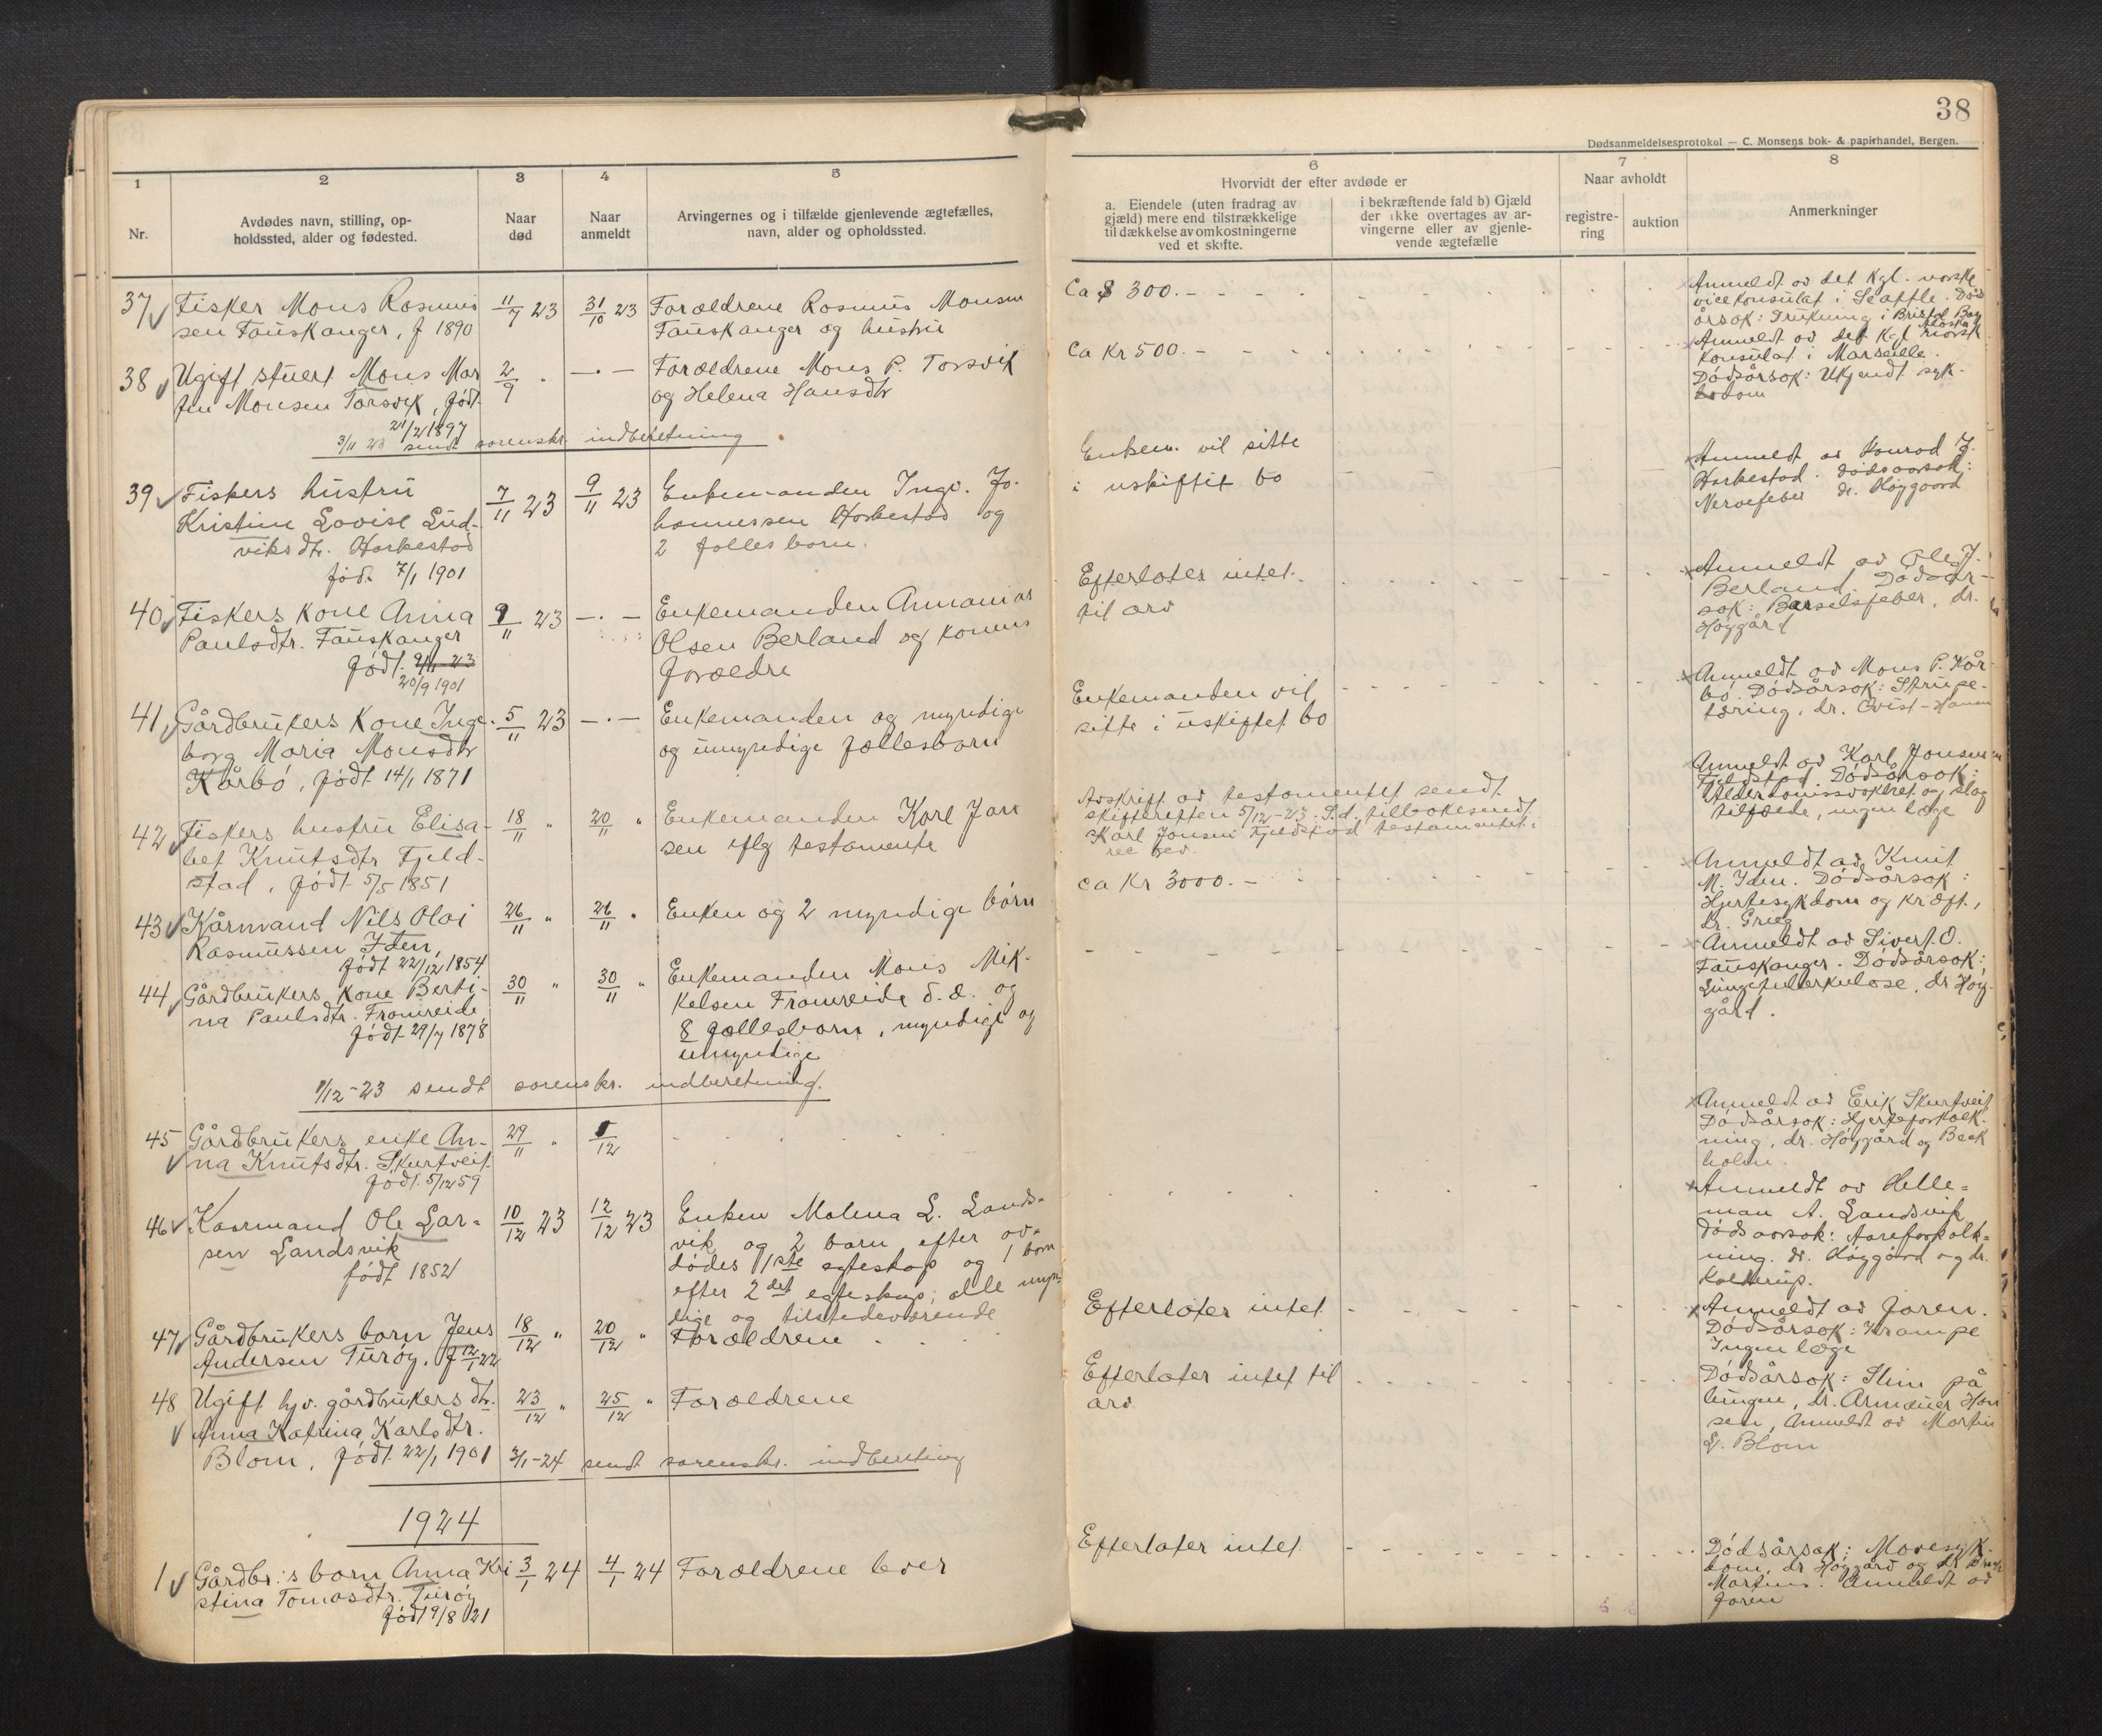 38
Dødsanmeldelsesprotokol — C. Monsens bok- & papirhandel, Bergen.
1
Nr.
2
Avdødes navn, stilling, op-
holdssted, alder og fødested.
3
Naar
død
4
Naar
anmeldt
5
Arvingernes og i tilfælde gjenlevende ægtefælles,
navn, alder og opholdssted.
6
Hvorvidt der efter avdøde er
a. Eiendele (uten fradrag av
gjæld) mere end tilstrækkelige
til dækkelse av omkostningerne
ved et skifte.
i bekræftende fald b) Gjæld
der ikke overtages av ar-
vingerne eller av gjenle-
vende ægtefælle
7
Naar avholdt
registre-
ring
auktion
8
Anmerkninger
37 Fisker Mons Rasmus
sen Fauskanger, f 1890
11/7 23
31/10 23
Forældrene Rasmus Monsen
Fauskanger og hustru
Ca $ 300.-
Anmeldt av det Kgl. norske
vicekonsulat i Seattle. Død
årsak: Drukning i Bristol Bay
Alaska
38 Ugift stuert Mons Mar
tin Monsen Torsvik, født
21/2 1897
2/9 "
— " —
Forældrene Mons P. Torsvik
og Helena Hansdtr
Ca Kr 500.-
Anmeldt av det Kgl norsk
Konsulat i Marseille.
Dødsårsak: Ukjendt syk-
dom
3/11 23 sendt sorenskr. indberetning
39 Fiskers hustru
Kristine Lovise Lud-
viksdtr. Harkestad
fød. 7/1 1901
7/11 23
9/11 23
Enkemanden Ingv. Jo-
hannessen Harkestad og
2 fælles barn.
Enkem. vil sitte
i uskiftet bo
Anmeldt av Konrad J.
Harkestad. Dødsaarsak:
Nervefeber dr. Høygaard
40 Fiskers kone Anna
Paulsdtr. Fauskanger
født. 9/11 23
20/9 1901
9/11 23
— " —
Enkemanden Annanias
Olsen Berland og konens
forældre
Efterlater intet
til arv
Anmeldt av Ole J.
Berland. Dødsår-
sak: Barselsfeber, dr.
Høygård
41 Gårdbrukers Kone Inge-
borg Maria Monsdtr
Kårbø, født 14/1 1871
5/11 23
— " —
Enkemanden og myndige
og umyndige fællesbarn
Enkemanden vil
sitte i uskiftet bo
Anmeldt av Mons P. Kår-
bø. Dødsårsak: Strupe-
tæring, dr. Qvist-Hansen
42 Fiskers hustru Elisa-
bet Knutsdtr Fjeld-
stad, født 5/5 1851
18/11 "
20/11 "
Enkemanden Karl Jon
sen iflg testamente
Avskrift av testamentet sendt
skifteretten 5/12-23. S.d. tilbakesendt
Karl Jonsen Fjeldstad testamentet i
rec brev.
Anmeldt av Karl Jonsen
Fjeldstad. Dødsårsak:
Alderdomssvakhet og slag
tilfælde, ingen læge
43 Kårmand Nils Olai
Rasmussen Iden,
født 22/12 1854
26/11 "
26/11 "
Enken og 2 myndige børn
ca Kr 3000.-
Anmeldt av Knut
M. Iden. Dødsårsak:
Hjertesykdom og kræft,
Dr. Grieg
44 Gårdbrukers kone Berti-
na Paulsdtr. Fromreide
født 29/7 1878
30/11 "
30/11 "
Enkemanden Mons Mik-
kelsen Fromreide d.e. og
8 fællesbarn, myndige og
umyndige
Anmeldt av Sivert O.
Fauskanger. Dødsårsak:
Lungetuberkulose, dr Høy-
gård.
1/12-23 sendt sorenskr. indberetning.
45 Gårdbrukers enke An-
na Knutsdtr. Skurtveit
født. 5/12 59
29/11 "
5/12
Anmeldt av Erik Skurtveit
Dødsårsak: Hjerteforkalk-
ning, dr. Høygård og Beck
holm.
46 Kaarmand Ole Lar-
sen Landsvik
født 1852
10/12 23
12/12 23
Enken Malena L. Lands-
vik og 2 barn efter av-
dødes 1ste egteskap og 1 barn
efter 2det egteskap; alle myn-
dige og tilstedeværende
Anmeldt av Helle-
man A. Landsvik
Dødsaarsak: Aareforkalk-
ning. dr. Høygaard og dr.
Kolderup.
47 Gårdbrukers barn Jens
Andersen Turøy. f 12/1 22
18/12 "
20/12 "
Forældrene
Efterlater intet
Anmeldt av faren.
Dødsårsak: Krampe
Ingen læge
48 Ugift hjv. gårdbrukers dtr.
Anna Katrina Karlsdtr.
Blom, født 22/1 1901
23/12 "
25/12 "
Forældrene
Efterlater intet til
arv
Dødsårsak: Slim på
lungene, dr. Armauer Han
sen, Anmeldt av Martin
L. Blom
3/1-24 sendt sorenskr. indberetning
1924
1 Gårdbr.'s barn Anna Kri
stina Tomasdtr. Turøy
født 9/8 21
3/1 24
4/1 24
Forældrene lever
Efterlater intet
Dødsårsak: Mavesyk-
dom, dr Høygård og dr
Martens. Anmeldt av
faren